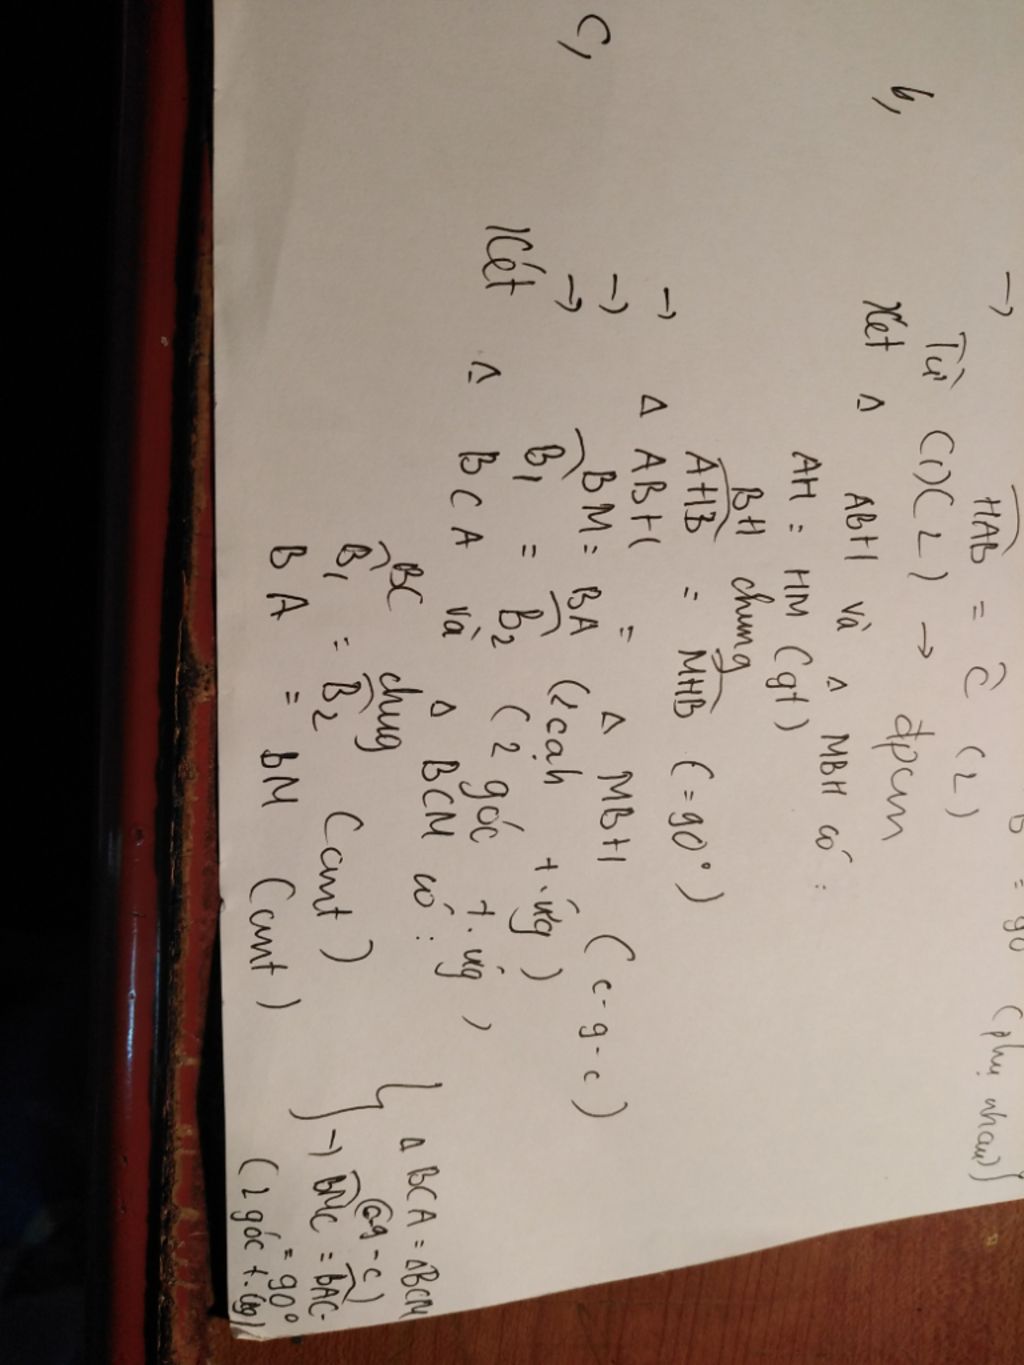 B = 90 (phụ nhau)
→ HAB = C (2)
Từ (1)(2) → đpcm
b, Xét Δ ABH và Δ MBH có:
AH = HM (gt)
BH chung
AHB = MHB (=90°)
→ Δ ABH = Δ MBH (c-g-c)
→ BM = BA (2 cạh t.ứg)
→ B1 = B2 (2 góc t.ứg)
c, Xét Δ BCA và Δ BCM có:
BC chug
B1 = B2 (cmt)
BA = BM (cmt)
Δ BCA = Δ BCM
(c-g-c)
→ BMC = BAC
= 90°
(2 góc t.ứg)